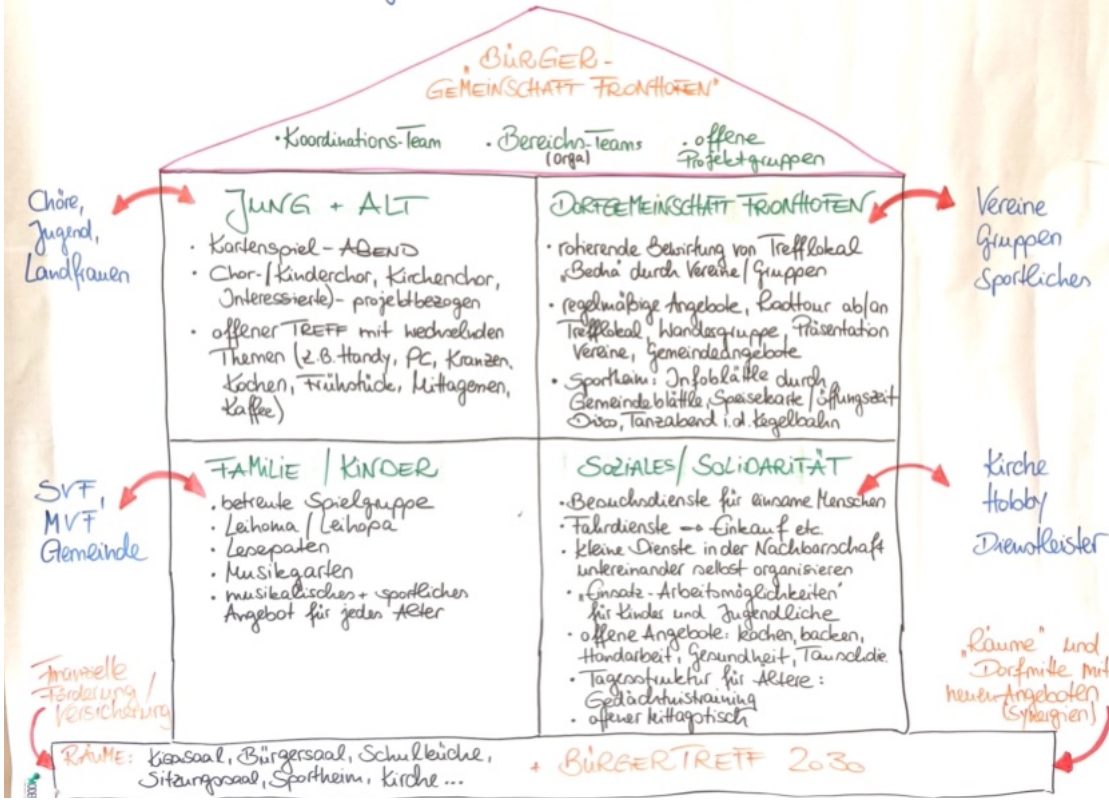 „BÜRGER-
GEMEINSCHAFT FRONHOFEN"
· Koordinations-Team
· Bereichs-Teams
(Orga)
· offene
Projektgruppen
Chöre,
Jugend,
Landfrauen
JUNG + ALT
· Kartenspiel-ABEND
· Chor-/Kinderchor, Kirchenchor,
Interessierte)- projektbezogen
· offener TREFF mit wechselnden
Themen (z.B. Handy, PC, Kranzen,
Kochen, Frühstück, Mittagessen,
Kaffee)
DORFGEMEINSCHAFT FRONHOFEN
· rotierende Bewirtung von Trefflokal
durch Vereine/Gruppen
· regelmäßige Angebote, Radtour ab/an
Trefflokal, Wandergruppe, Präsentation
Vereine, Gemeindeangebote
· Sportheim: Infoblättle durch
Gemeindeblättle, Speisekarte/Öffungszeit
Disco, Tanzabend i.d. Kegelbahn
Vereine
Gruppen
Sportliches
SVF,
MVF
Gemeinde
FAMILIE / KINDER
· betreute Spielgruppe
· Leihoma / Leihopa
· Lesepaten
· Musikgarten
· musikalisches + sportliches
Angebot für jedes Alter
SOZIALES / SOLIDARITÄT
· Besuchsdienste für einsame Menschen
· Fahrdienste → Einkauf etc.
· kleine Dienste in der Nachbarschaft
untereinander selbst organisieren
· „Einsatz-Arbeitsmöglichkeiten"
für Kinder und Jugendliche
· offene Angebote: kochen, backen,
Handarbeit, Gesundheit,
· Tagesstruktur für Ältere:
Gedächtnistraining
· offener Mittagstisch
Kirche
Hobby
Dienstleister
Finanzielle
Förderung /
Versicherung
„Räume" und
Dorfmitte mit
neuen Angeboten
(Synergien)
RÄUME: Bürgersaal, Schulküche,
Sitzungssaal, Sportheim, Kirche ...
+ BÜRGERTREFF 2030